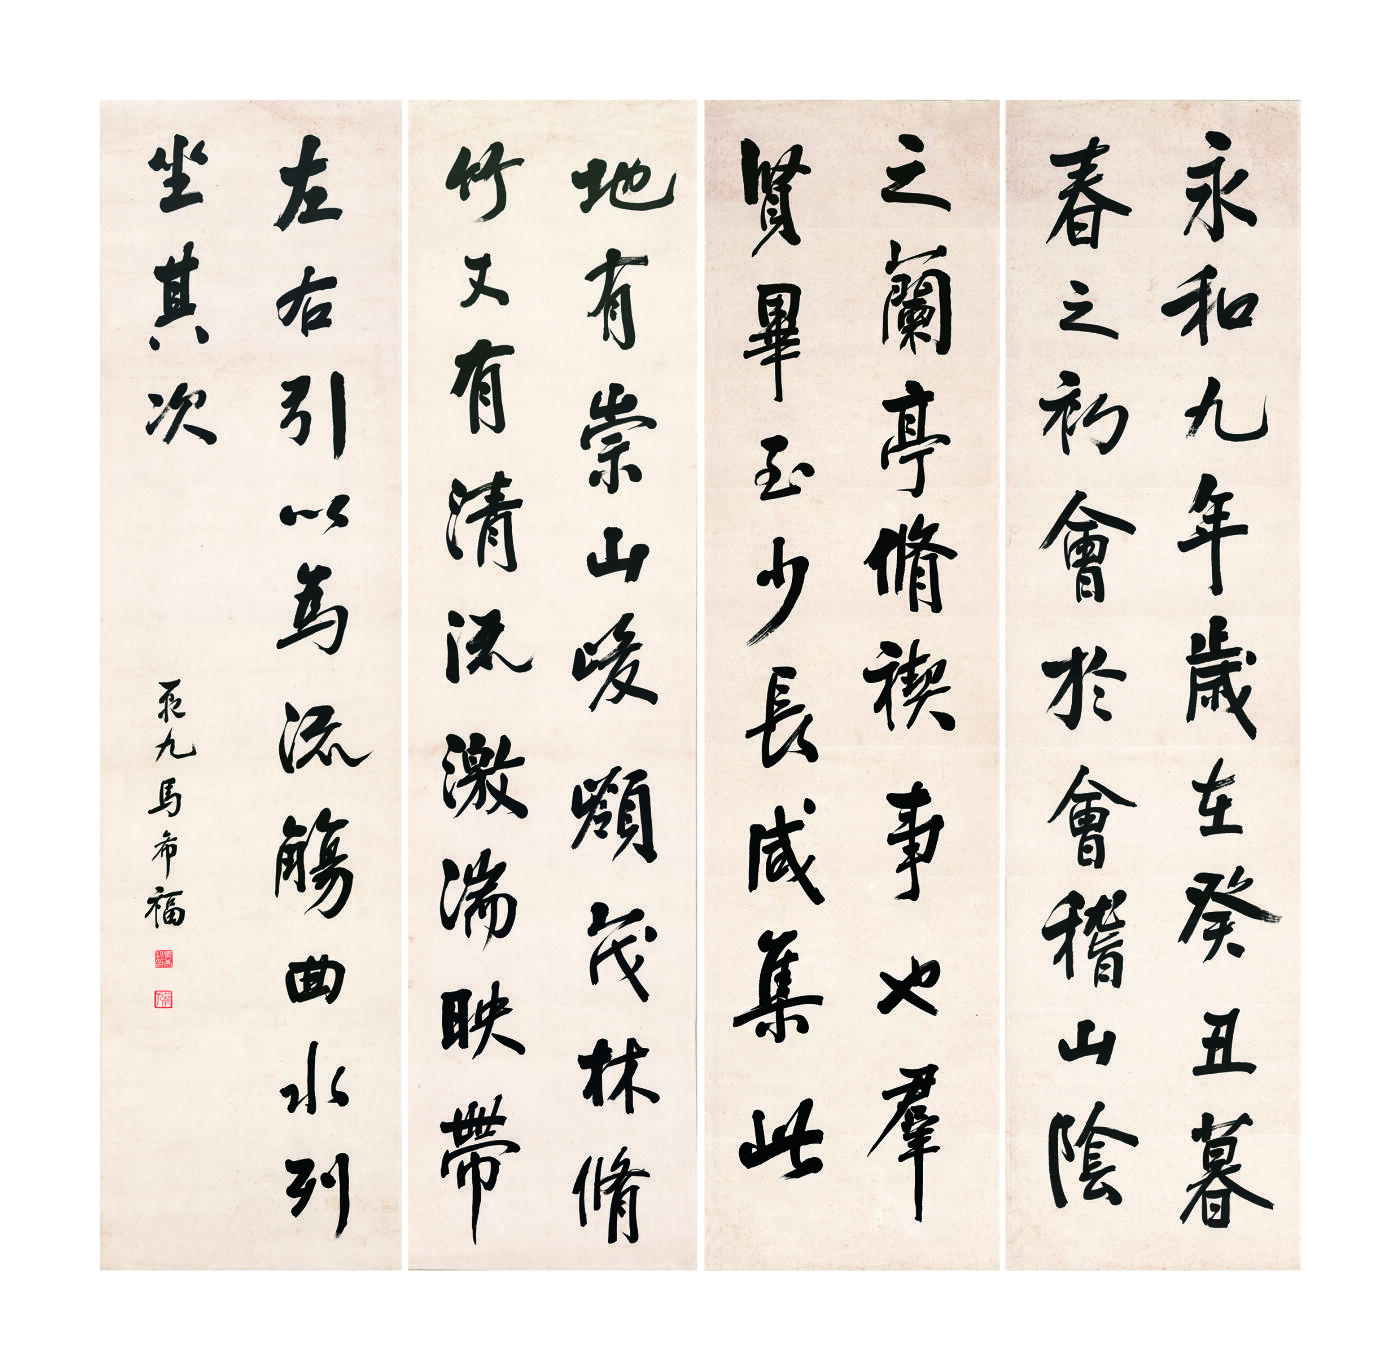 永和九年歲在癸丑暮
春之初會於會稽山陰
之蘭亭脩禊事也羣
賢畢至少長咸集此
地有崇山峻嶺茂林脩
竹又有清流激湍映帶
左右引以為流觴曲水列
坐其次
九馬希福